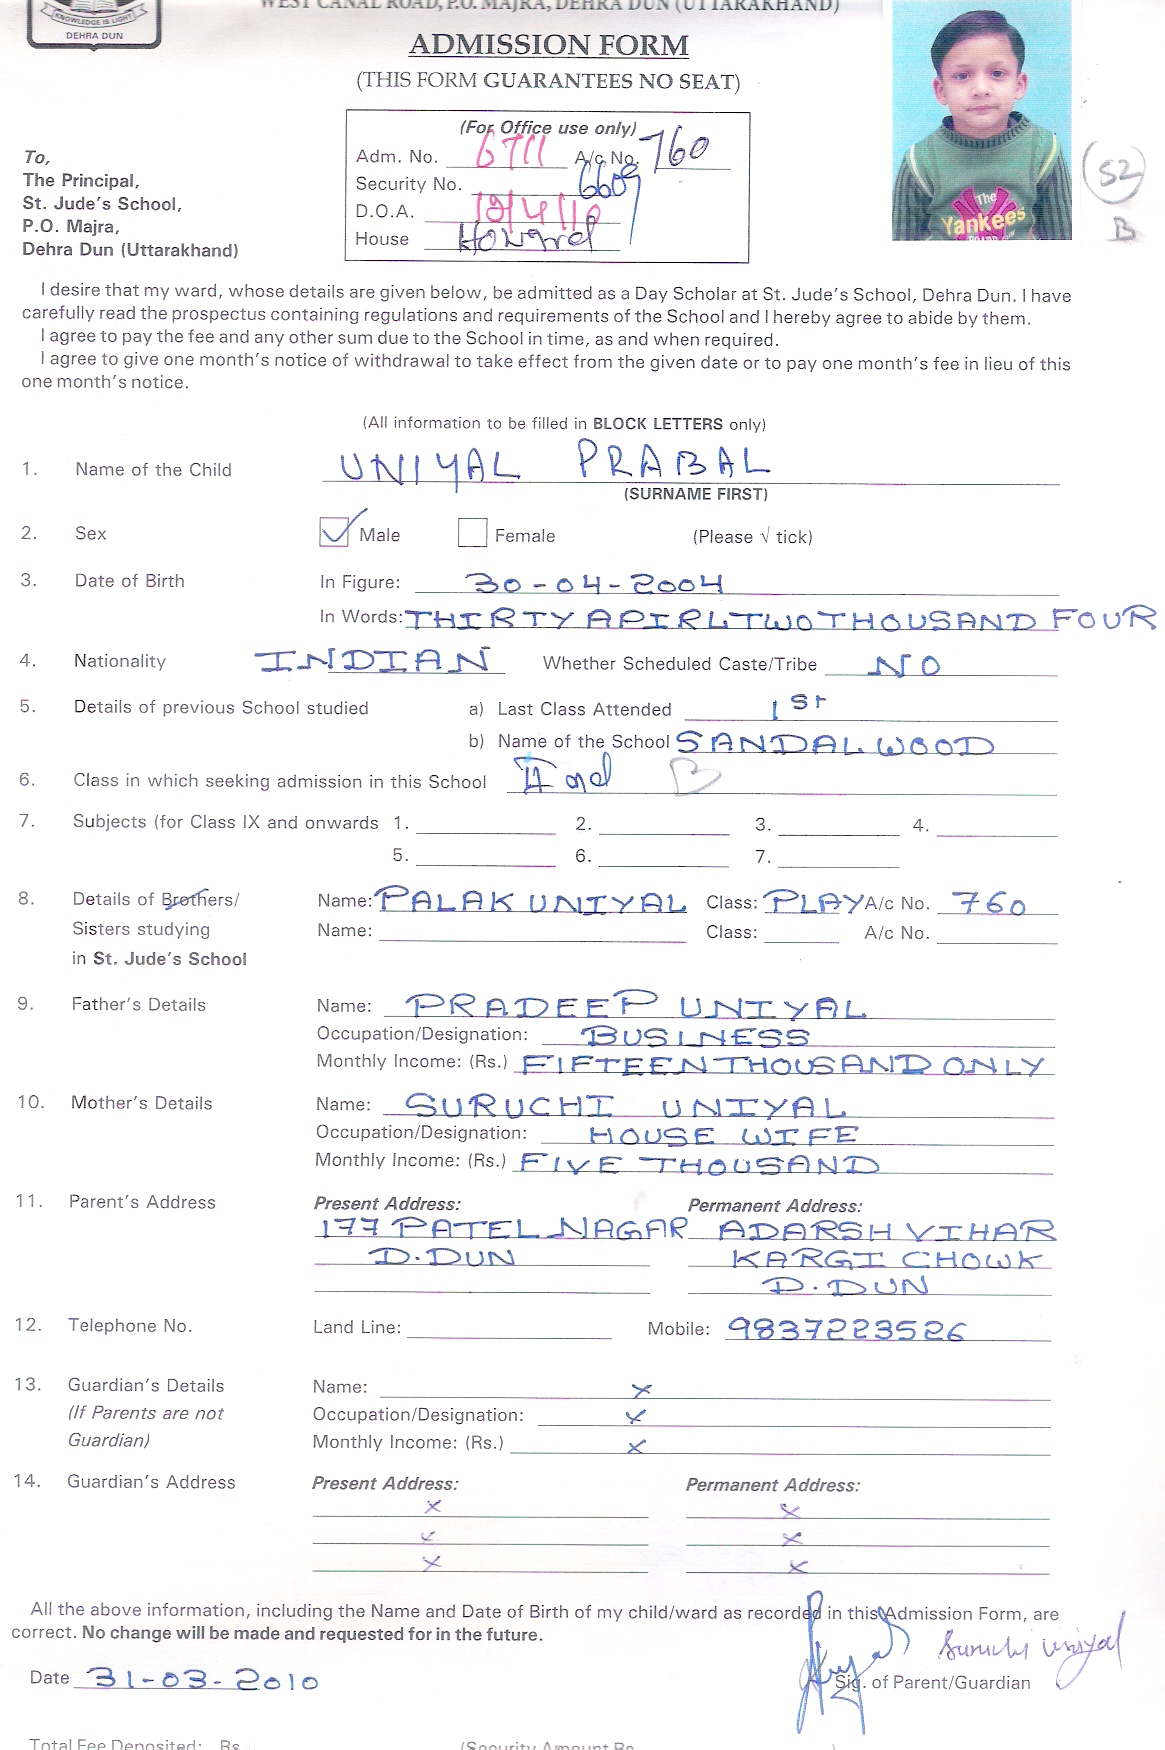 KNOWLEDGE IS LIGHT
DEHRA DUN
WEST CANAL ROAD, P.O. MAJRA, DEHRA DUN (UTTARAKHAND)
ADMISSION FORM
(THIS FORM GUARANTEES NO SEAT)
(For Office use only)
Adm. No. 6711 A/c No. 760
Security No. 6609
D.O.A. 12/4/10
House Howard
The
Yankees
52
B
To,
The Principal,
St. Jude's School,
P.O. Majra,
Dehra Dun (Uttarakhand)
I desire that my ward, whose details are given below, be admitted as a Day Scholar at St. Jude's School, Dehra Dun. I have
carefully read the prospectus containing regulations and requirements of the School and I hereby agree to abide by them.
I agree to pay the fee and any other sum due to the School in time, as and when required.
I agree to give one month's notice of withdrawal to take effect from the given date or to pay one month's fee in lieu of this
one month's notice.
(All information to be filled in BLOCK LETTERS only)
1. Name of the Child UNIYAL PRABAL
(SURNAME FIRST)
2. Sex Male Female (Please √ tick)
3. Date of Birth In Figure: 30-04-2004
In Words: THIRTY APIRL TWO THOUSAND FOUR
4. Nationality INDIAN Whether Scheduled Caste/Tribe NO
5. Details of previous School studied a) Last Class Attended 1st
b) Name of the School SANDAL WOOD
6. Class in which seeking admission in this School II nd B
7. Subjects (for Class IX and onwards 1. 2. 3. 4.
5. 6. 7.
8. Details of Brothers/ Name: PALAK UNIYAL Class: PLAY A/c No. 760
Sisters studying Name: Class: A/c No.
in St. Jude's School
9. Father's Details Name: PRADEEP UNIYAL
Occupation/Designation: BUSINESS
Monthly Income: (Rs.) FIFTEEN THOUSAND ONLY
10. Mother's Details Name: SURUCHI UNIYAL
Occupation/Designation: HOUSE WIFE
Monthly Income: (Rs.) FIVE THOUSAND
11. Parent's Address Present Address: Permanent Address:
177 PATEL NAGAR ADARSH VIHAR
D.DUN KARGI CHOWK
D.DUN
12. Telephone No. Land Line: Mobile: 9837223526
13. Guardian's Details Name: x
(If Parents are not Occupation/Designation: x
Guardian) Monthly Income: (Rs.) x
14. Guardian's Address Present Address: Permanent Address:
x x
x x
x x
All the above information, including the Name and Date of Birth of my child/ward as recorded in this Admission Form, are
correct. No change will be made and requested for in the future.
Suruchi Uniyal
Date 31-03-2010 Sig. of Parent/Guardian
Total Fee Deposited: Rs. (Security Amount Rs. )